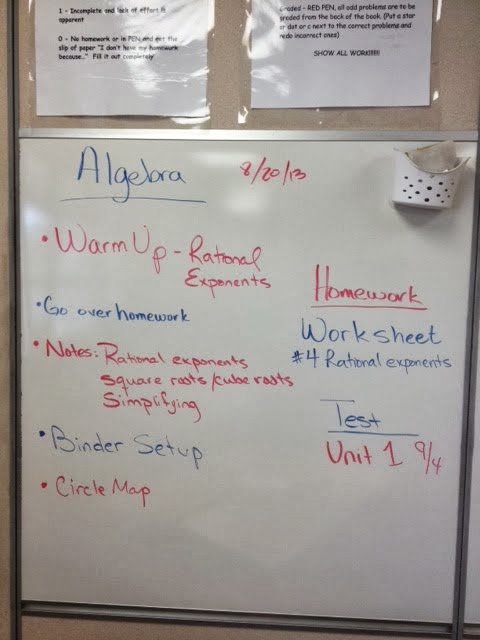 1 - Incomplete and lack of effort is
apparent
0 - No homework or in PEN and get the
slip of paper "I don't have my homework
because..." Fill it out completely
Graded - RED PEN, all odd problems are to be
graded from the back of the book. (Put a star
or dot or c next to the correct problems and
redo incorrect ones)
SHOW ALL WORK!!!!!!!
Algebra 8/20/13
• Warm Up - Rational
Exponents
• Go over homework
• Notes: Rational exponents
square roots/cube roots
Simplifying
• Binder Setup
• Circle Map
Homework
Worksheet
#4 Rational exponents
Test
Unit 1 9/4